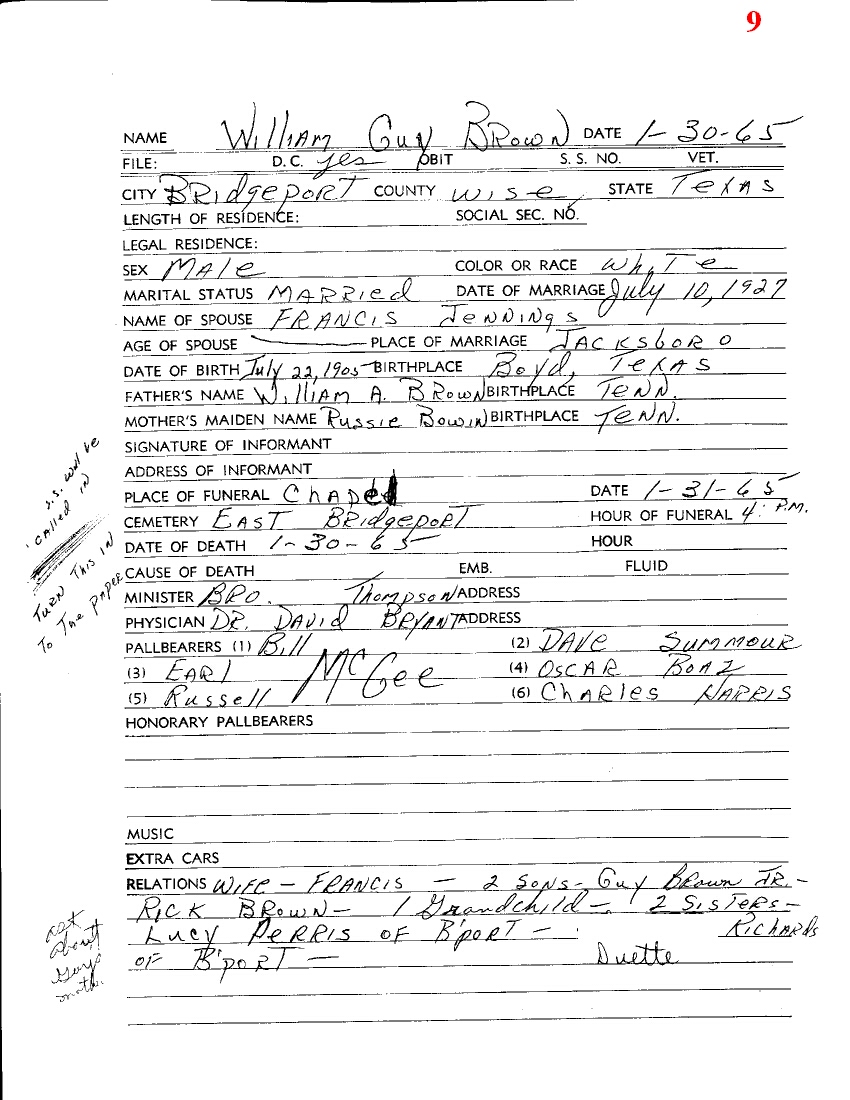 9
NAME William Guy Brown DATE 1-30-65
FILE: D.C. yes OBIT S. S. NO. VET.
CITY Bridgeport COUNTY Wise STATE Texas
LENGTH OF RESIDENCE: SOCIAL SEC. NO.
LEGAL RESIDENCE:
SEX Male COLOR OR RACE White
MARITAL STATUS MARRied DATE OF MARRIAGE July 10, 1927
NAME OF SPOUSE FRANCIS Jennings
AGE OF SPOUSE — PLACE OF MARRIAGE JACKsboro
DATE OF BIRTH July 22, 1905 BIRTHPLACE Boyd, Texas
FATHER'S NAME William A. Brown BIRTHPLACE Tenn.
MOTHER'S MAIDEN NAME Russie Bowin BIRTHPLACE Tenn.
SIGNATURE OF INFORMANT
ADDRESS OF INFORMANT
PLACE OF FUNERAL Chapel DATE 1-31-65
CEMETERY EAST Bridgeport HOUR OF FUNERAL 4: P.M.
DATE OF DEATH 1-30-65 HOUR
CAUSE OF DEATH EMB. FLUID
MINISTER BRO. Thompson ADDRESS
PHYSICIAN DR. David Bryant ADDRESS
PALLBEARERS (1) Bill (2) DAVE Summour
(3) EARl McGee (4) OSCAR BOAZ
(5) Russell (6) Charles HARRIS
HONORARY PALLBEARERS
MUSIC
EXTRA CARS
RELATIONS Wife - FRANCIS - 2 Sons - Guy Brown JR. -
Rick Brown - 1 Grandchild - 2 Sisters -
Lucy Perris of B'port - Richards
of B'port - Duette
S.S. will be
called in
Turn This in
To The paper
ask
about
Guys